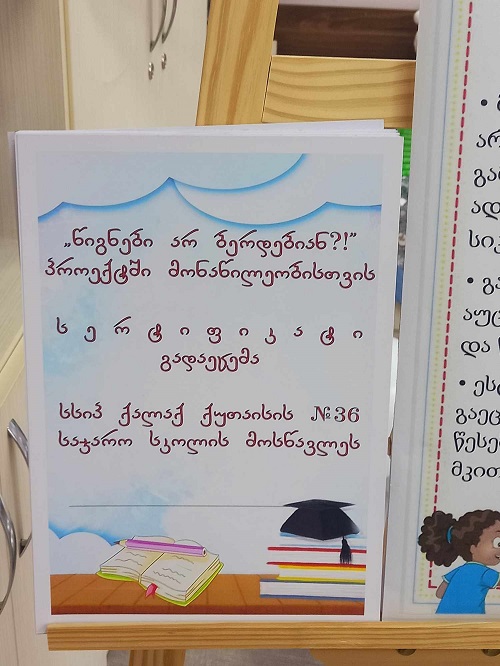 „წიგნები არ ბერდებიან?!”
პროექტში მონაწილეობისთვის
სერტიფიკატი
გადაეცემა
სსიპ ქალაქ ქუთაისის №36
საჯარო სკოლის მოსწავლეს
და